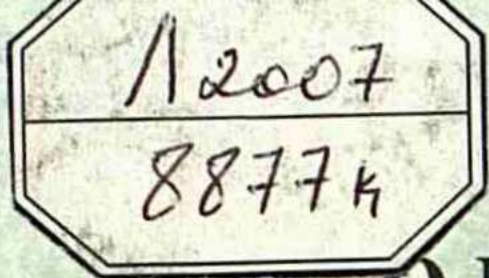 Л2007
8877к